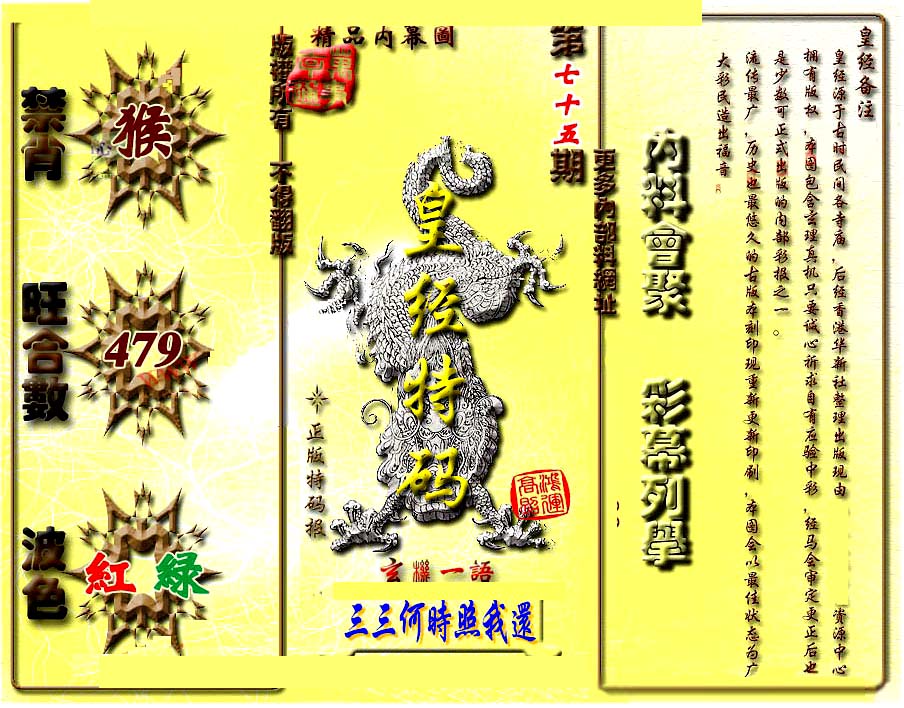 皇经备注
皇经源于古时民间各寺庙，后经香港华新社整理出版现由 资源中心
拥有版权，本图包含玄理真机只要诚心祈求自有应验中彩，经马会审定更正后也
是少数可正式出版的内部彩报之一。
流传最广，历史也最悠久的古版本刻印现重新更新印刷，本图会以最佳状态为广
大彩民造出福音
內料會聚
彩幕列舉
更多內部料網址
第七十五期
精品內幕圖
皇经特码
正版特码报
鴻運
高照
玄機一語
三三何時照我還
版權所有 不得翻版
禁肖
猴
旺合數
479
波色
紅 綠